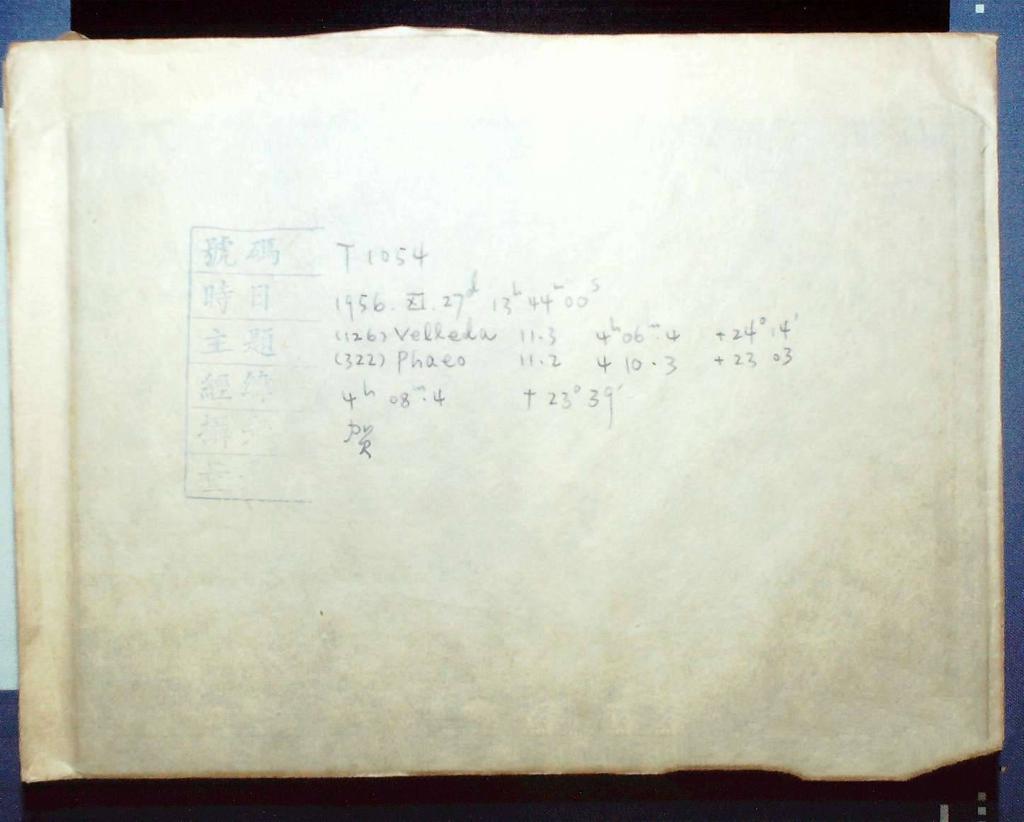 號碼 T 1054
時日 1956. XI. 27ᵈ 13ʰ 44ᵐ 00ˢ
主題 (126) Velleda 11.3 4ʰ 06ᵐ.4 +24° 14'
(322) Phaeo 11.2 4 10.3 +23 03
經緯 4ʰ 08ᵐ.4 +23° 39'
賀